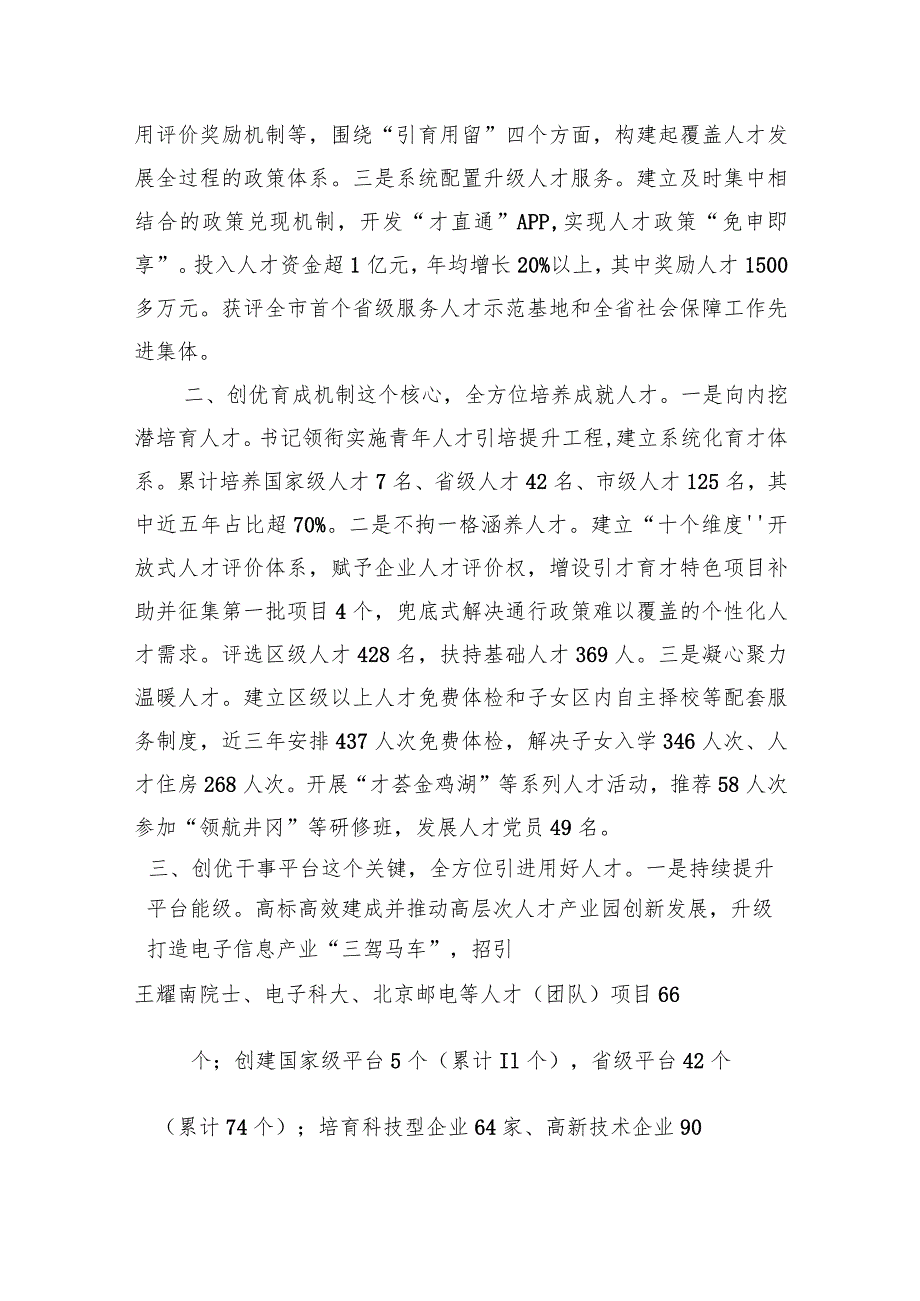 用评价奖励机制等，围绕“引育用留”四个方面，构建起覆盖人才发
展全过程的政策体系。三是系统配置升级人才服务。建立及时集中相
结合的政策兑现机制，开发“才直通”APP,实现人才政策“免申即
享”。投入人才资金超1亿元，年均增长20%以上，其中奖励人才1500
多万元。获评全市首个省级服务人才示范基地和全省社会保障工作先
进集体。
二、创优育成机制这个核心，全方位培养成就人才。一是向内挖
潜培育人才。书记领衔实施青年人才引培提升工程,建立系统化育才体
系。累计培养国家级人才7名、省级人才42名、市级人才125名，其
中近五年占比超70%。二是不拘一格涵养人才。建立“十个维度''开
放式人才评价体系，赋予企业人才评价权，增设引才育才特色项目补
助并征集第一批项目4个，兜底式解决通行政策难以覆盖的个性化人
才需求。评选区级人才428名，扶持基础人才369人。三是凝心聚力
温暖人才。建立区级以上人才免费体检和子女区内自主择校等配套服
务制度，近三年安排437人次免费体检，解决子女入学346人次、人
才住房268人次。开展“才荟金鸡湖”等系列人才活动，推荐58人次
参加“领航井冈”等研修班，发展人才党员49名。
三、创优干事平台这个关键，全方位引进用好人才。一是持续提升
平台能级。高标高效建成并推动高层次人才产业园创新发展，升级
打造电子信息产业“三驾马车”，招引
王耀南院士、电子科大、北京邮电等人才（团队）项目66
个；创建国家级平台5个（累计Il个），省级平台42个
（累计74个）；培育科技型企业64家、高新技术企业90